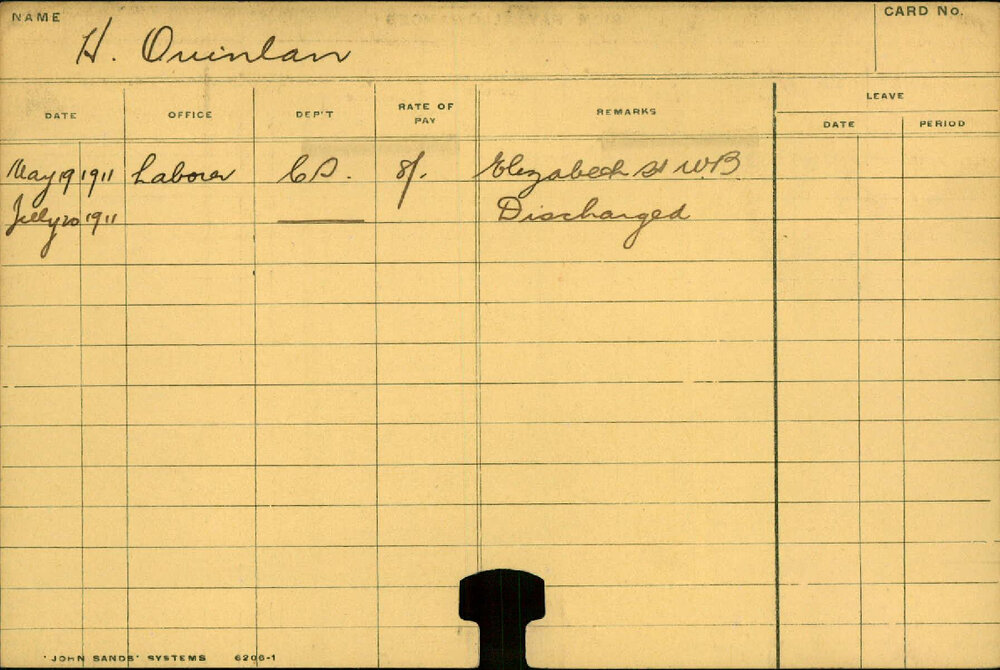 NAME
CARD No.
H. Quinlan
DATE OFFICE DEP'T RATE OF PAY REMARKS LEAVE
DATE PERIOD
May 19 1911 Laborer CS. 8/. Elizabeth St WB
July 20 1911 Discharged
'JOHN SANDS' SYSTEMS 6206-1